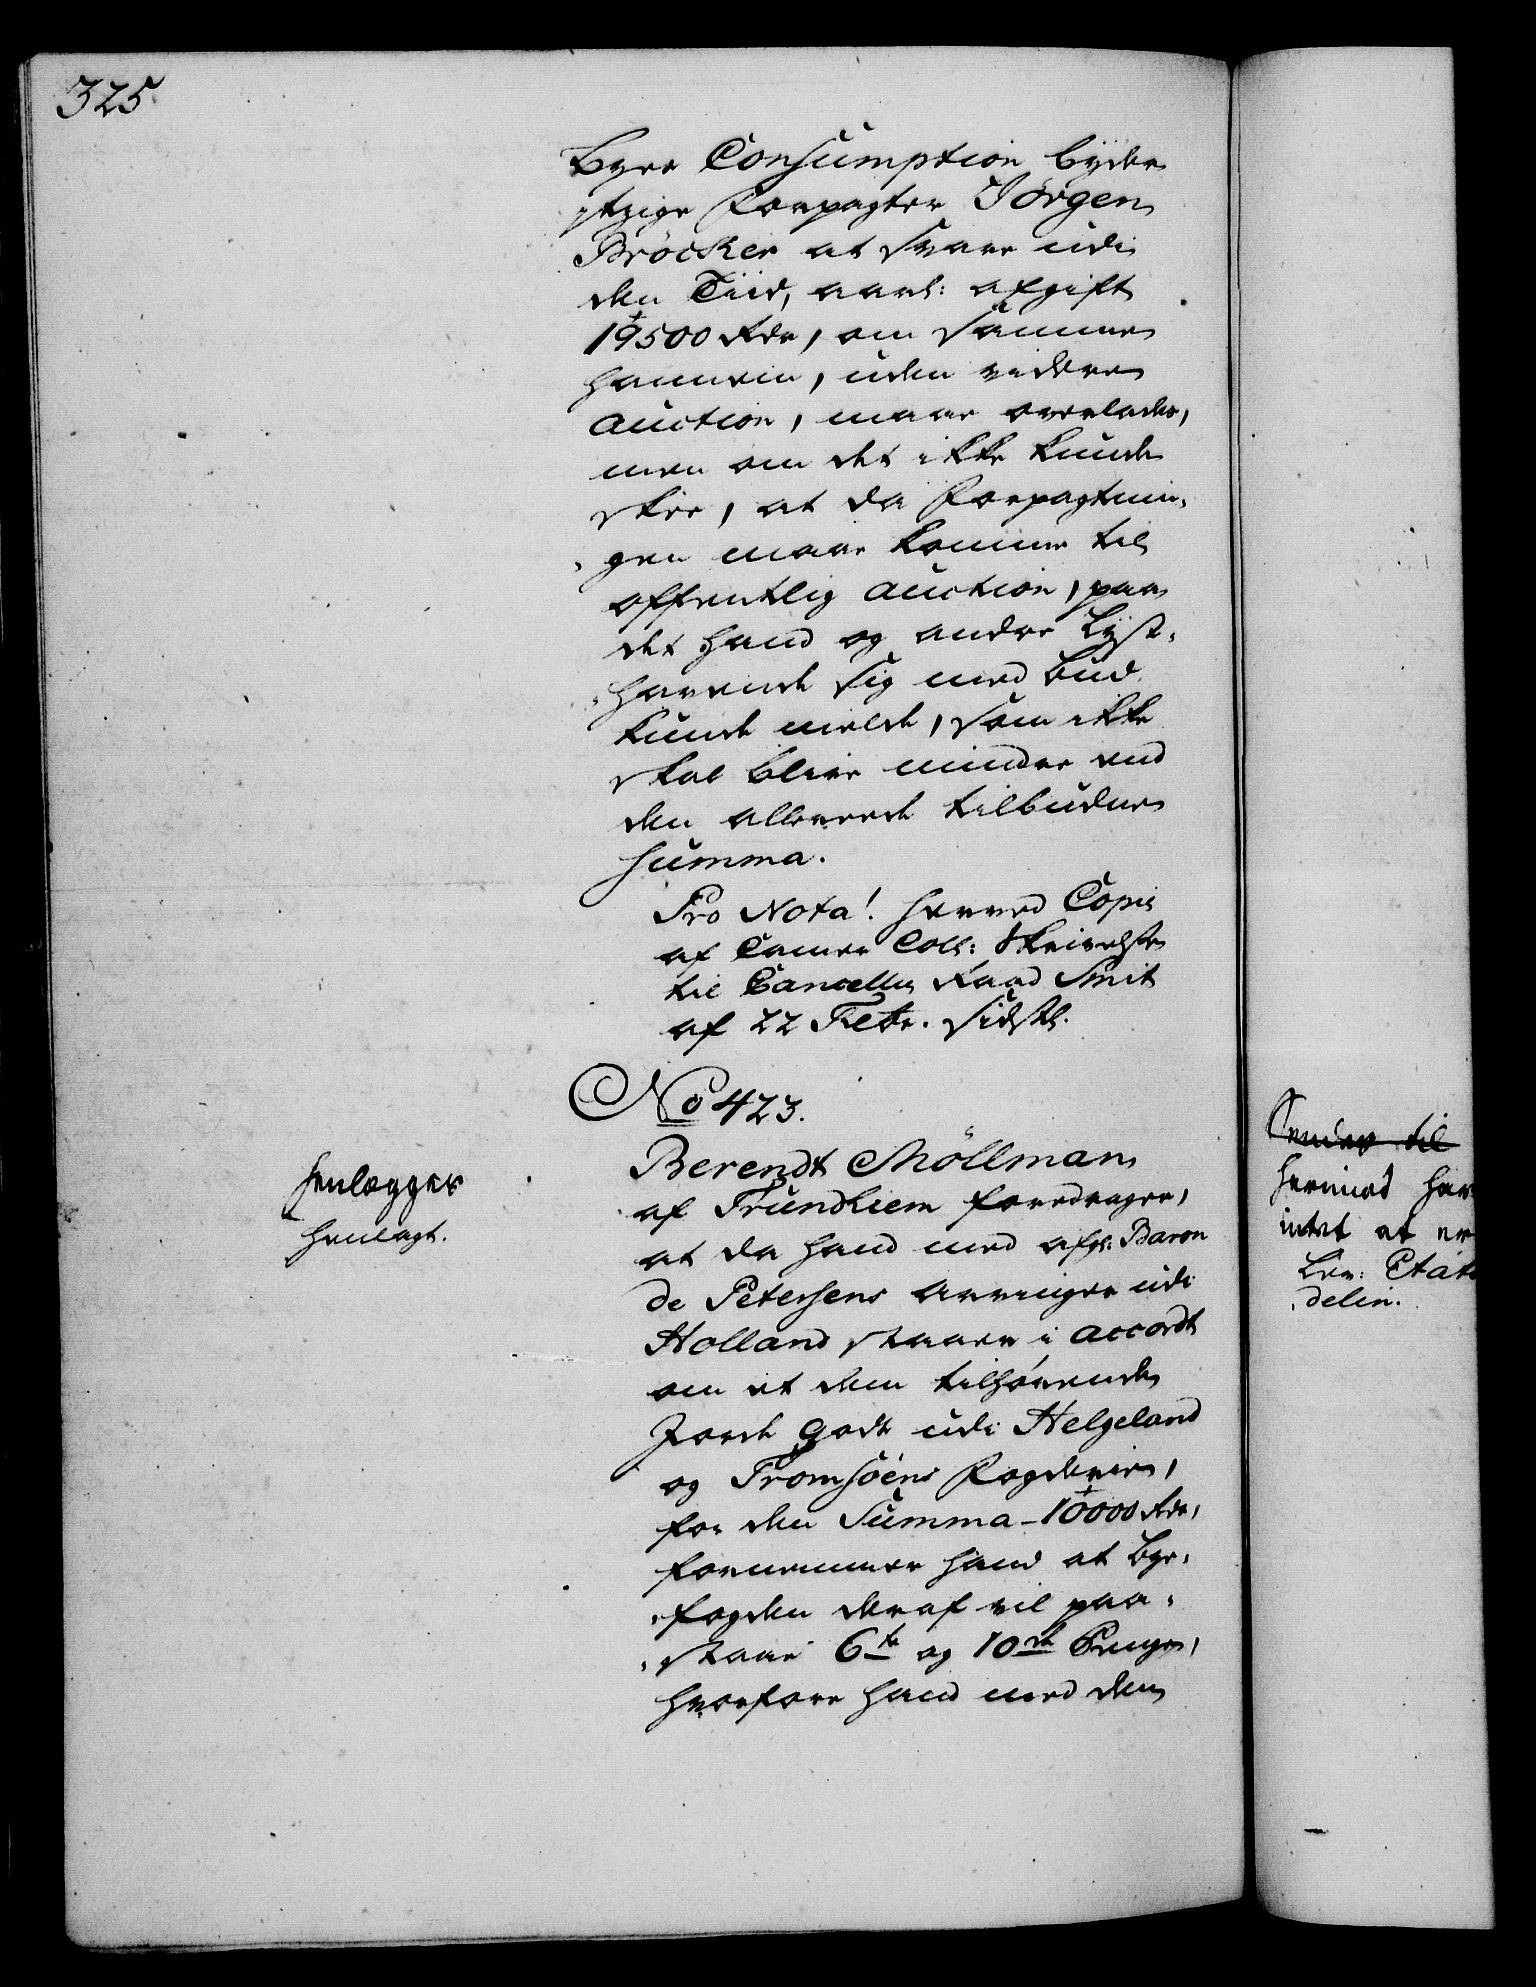 325.
Byes Consumption byder
itzige Forpagter Jörgen
Bröcker at svare udi
den Tiid, aarl: afgift
19500 Rdr, om samme
hannem, uden videre
Auction, maae overlades,
men om det ikke kunde
skee, at da Forpagtnin-
gen maae komme til
offentlig Auction, paa
det hand og andre Lyst-
havende sig med bud
kunde melde, som ikke
skal blive mindre end
den allereede tilbudne
Summa.
Pro Nota! herved Copie
af Camer Coll: Skrivelse
til Cancellie Raad Smit
af 22 Febr. sidstl.
No 423.
Berendt Möllman
af Trundhiem foredrager,
at da hand med afg: Baron
de Petersens arvinger udi
Holland staaer i accordt
om et dem tilhørende
Jorde Godts udi Helgeland
og Tromsøens Fogderier,
for den Summa 10000 Rdr,
fornemmer hand at bye-
fogden deraf vil paa-
staae 6te og 10de Penge,
hvorfore hand med den
henlegges
henlagt.
Sendes til
hermed har
intet at er
Lev: Etats
delin.